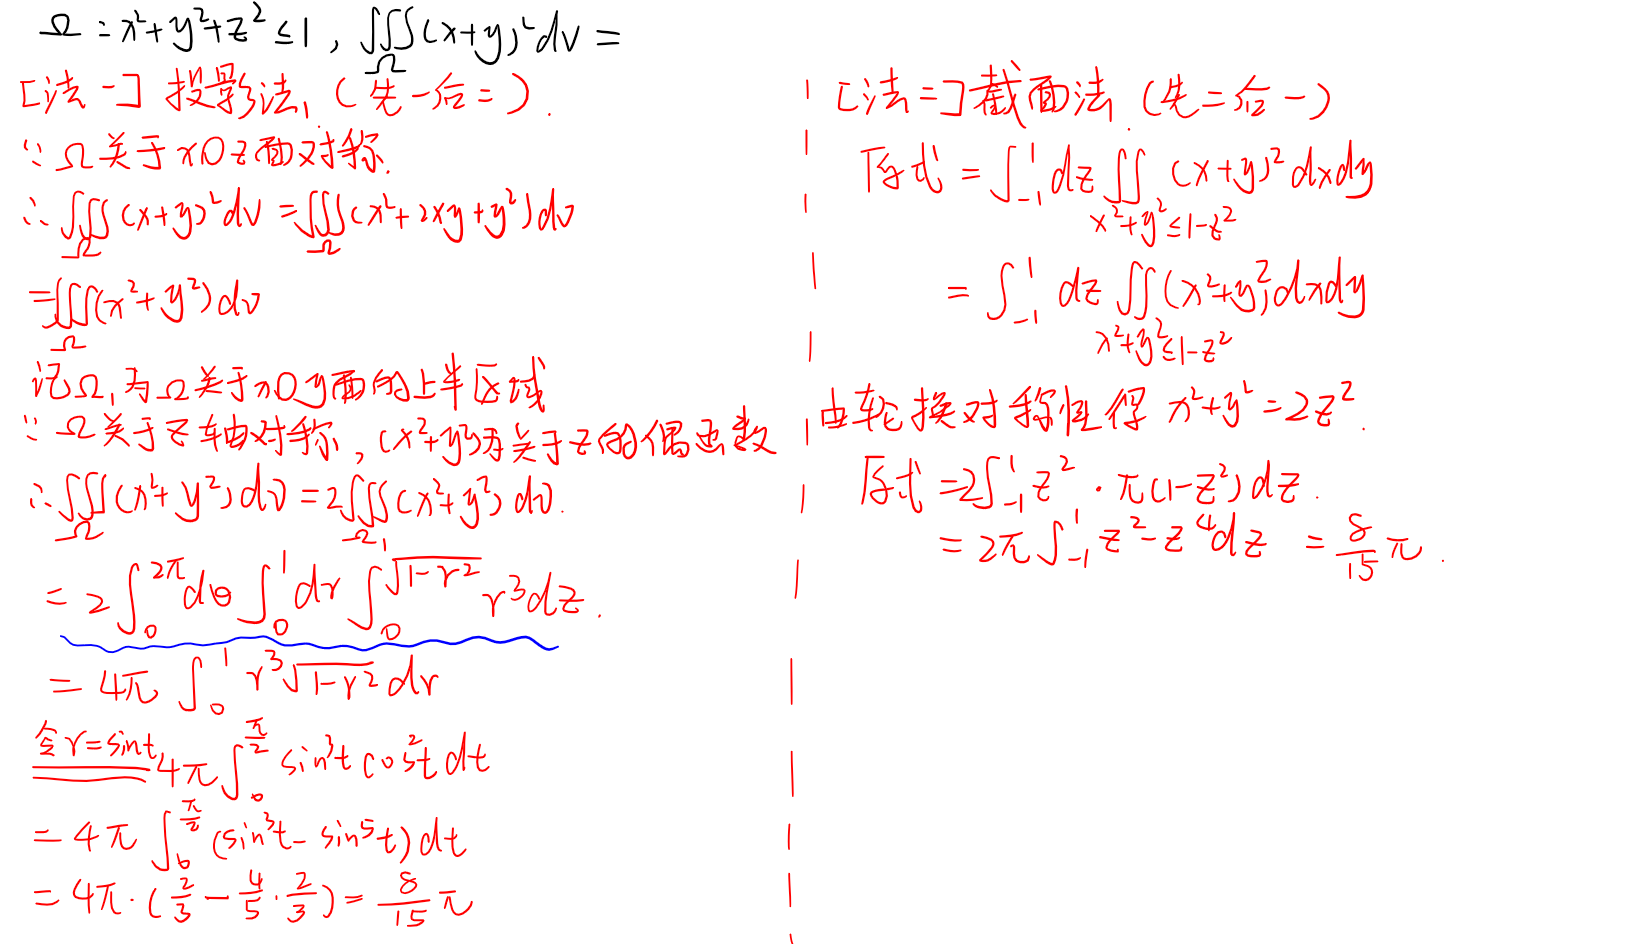 Ω：x²+y²+z²≤1，∭_Ω(x+y)²dv=
[法一] 投影法.（先一后二）.
∵Ω关于xOz面对称.
∴∭_Ω(x+y)²dv=∭_Ω(x²+2xy+y²)dv
=∭_Ω(x²+y²)dv
记Ω₁为Ω关于xOy面的上半区域
∵Ω关于z轴对称，(x²+y²)为关于z的偶函数
∴∭_Ω(x²+y²)dv=2∭_Ω₁(x²+y²)dv.
=2∫_0^{2π}dθ∫_0^1dr∫_0^{√(1-r²)}r³dz.
=4π∫_0^1r³√(1-r²)dr
令r=sint 4π∫_0^{π/2}sin³tcos²tdt
=4π∫_0^{π/2}(sin³t-sin⁵t)dt
=4π·(2/3-4/5·2/3)=8/15π
[法二]截面法.（先二后一）
原式=∫_{-1}^1dz∬_{x²+y²≤1-z²}(x+y)²dxdy
=∫_{-1}^1dz∬_{x²+y²≤1-z²}(x²+y²)dxdy
由轮换对称性得 x²+y²=2z².
原式=2∫_{-1}^1z²·π(1-z²)dz.
=2π∫_{-1}^1z²-z⁴dz=8/15π.